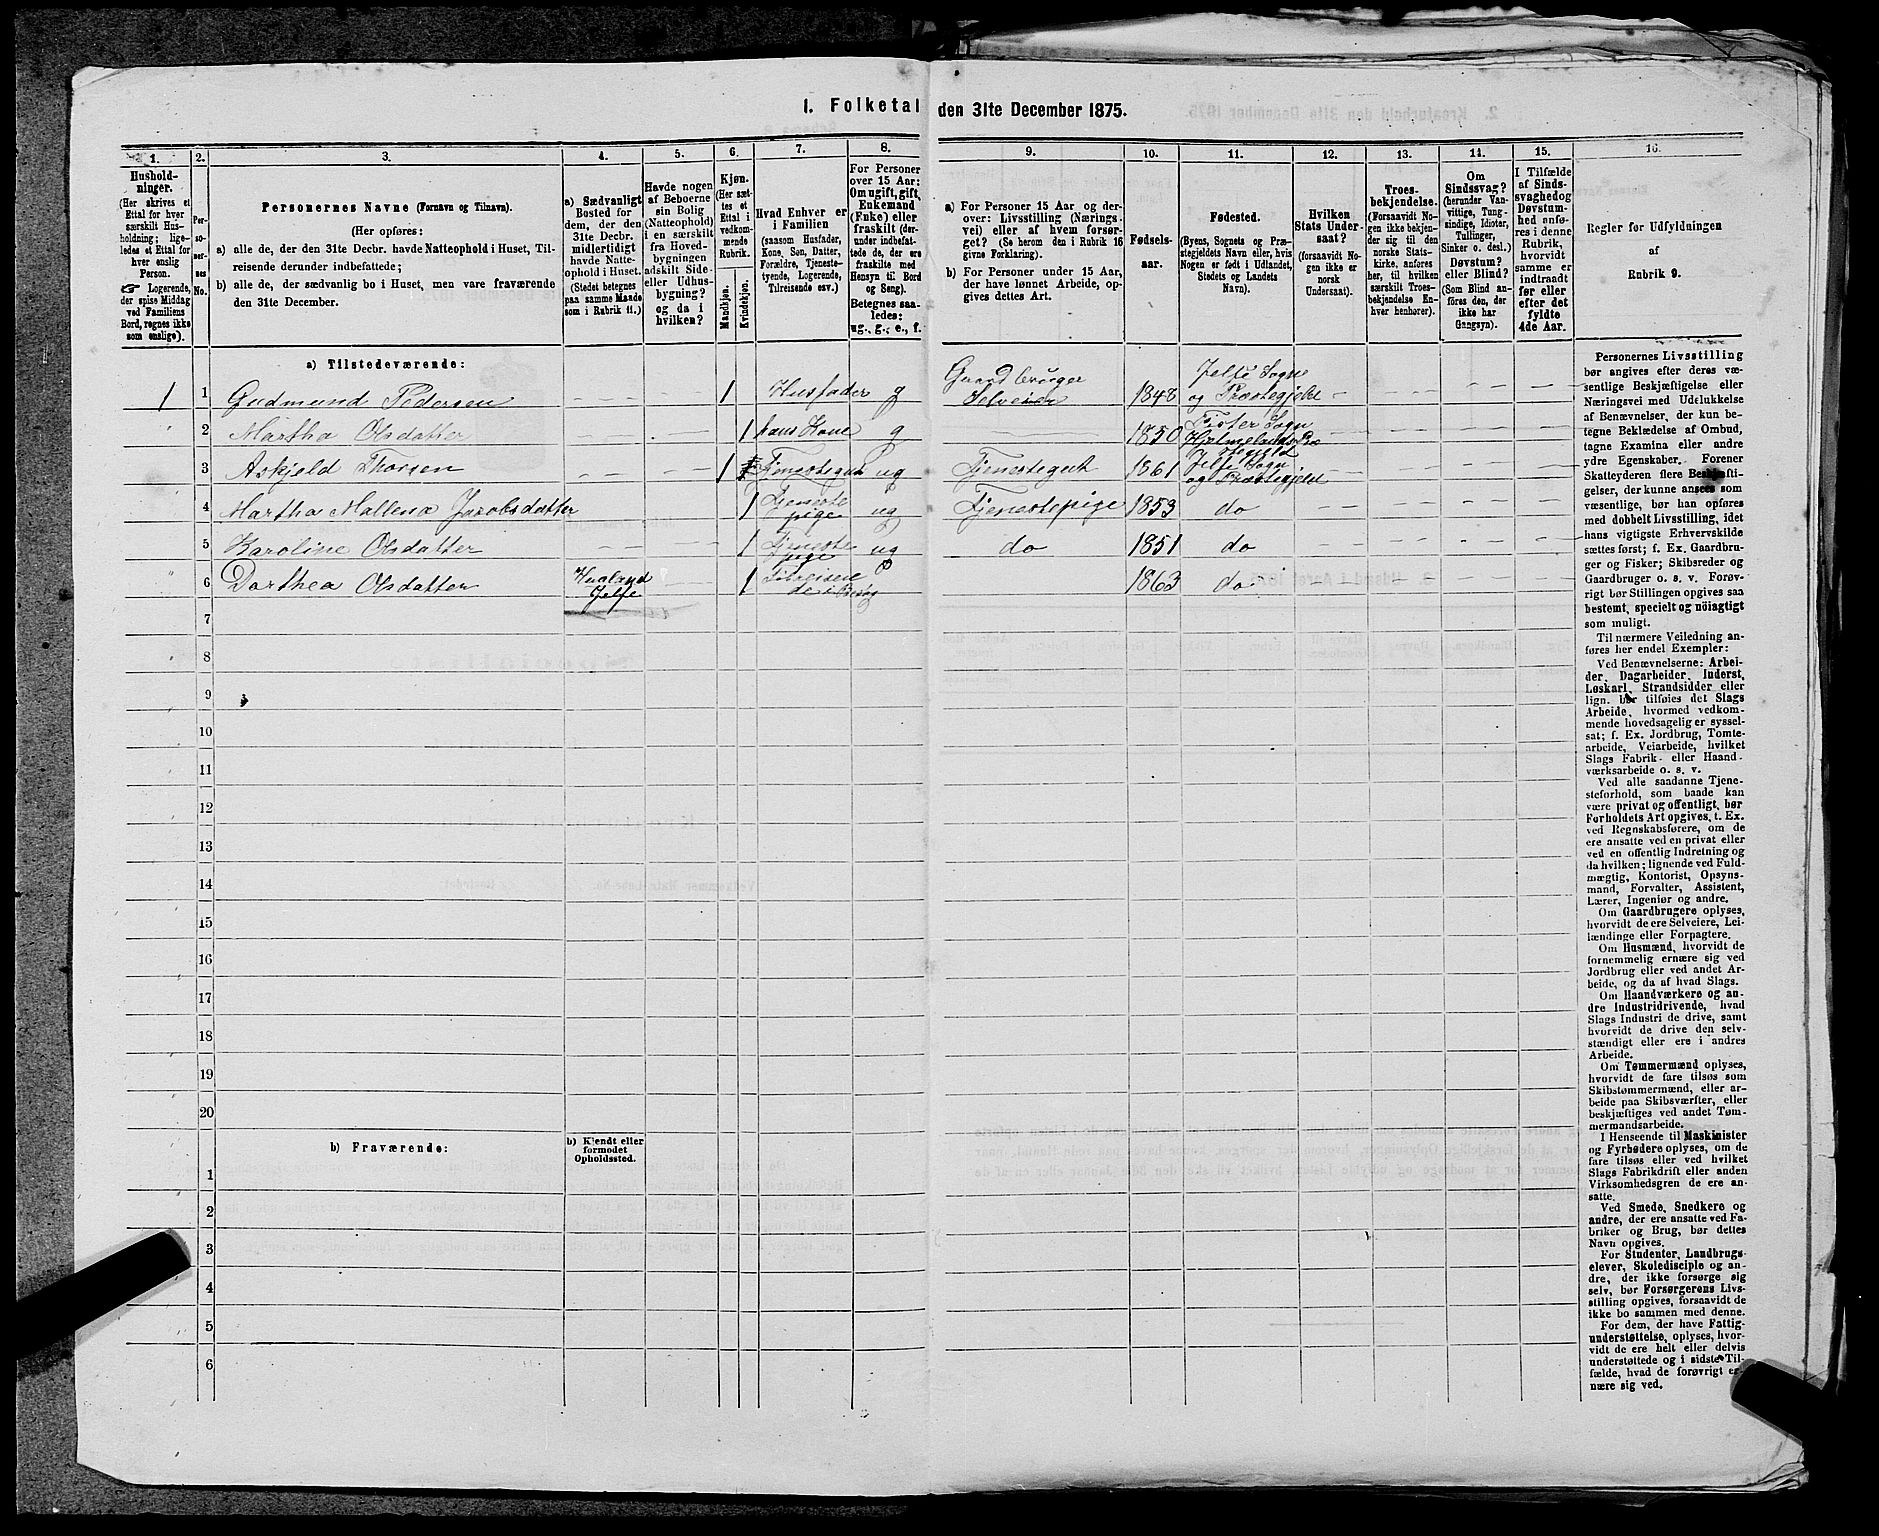 1. Folketal den 31te December 1875.
1. 2. 3. 4. 5. 6. 7. 8. 9. 10. 11. 12. 13. 14. 15. 16.
Hushold-
ninger.
(Her skrives et
Ettal for hver
særskilt Hus-
holdning; lige-
ledes et Ettal for
hver enslig
Person.
☞ Logerende,
der spise Middag
ved Familiens
Bord, regnes ikke
som enslige).
Per-
so-
ner-
nes
No.
Personernes Navne (Fornavn og Tilnavn).
(Her opføres:
a) alle de, der den 31te Decbr. havde Natteophold i Huset, Til-
reisende derunder indbefattede;
b) alle de, der sædvanlig bo i Huset, men vare fraværende
den 31te December.
a) Sædvanligt
Bosted for
dem, der den
31te Decbr.
midlertidigt
havde Natte-
ophold i Huset.
(Stedet betegnes
paa samme Maade
som i Rubrik 11.)
Havde nogen
af Beboerne
sin Bolig
(Natteophold)
i en særskilt
fra Hoved-
bygningen
adskilt Side-
eller Udhus-
bygning?
og da i
hvilken?
Kjøn.
(Her sæt-
tes et
Ettal i
vedkom-
mende
Rubrik.
Mandkjøn.
Kvindekjøn.
Hvad Enhver er
i Familien
(saasom Husfader,
Kone, Søn, Datter,
Forældre, Tjeneste-
tyende, Logerende,
Tilreisende osv.)
For Personer
over 15 Aar:
Om ugift, gift,
Enkemand
(Enke) eller
fraskilt (der-
under indbefat-
tede de, der ere
fraskilte med
Hensyn til Bord
og Seng).
Betegnes saa-
ledes:
ug., g., e., f.
a) For Personer 15 Aar og der-
over: Livsstilling (Nærings-
vei) eller af hvem forsør-
get? (Se herom den i Rubrik 16
givne Forklaring).
b) For Personer under 15 Aar,
der have lønnet Arbeide, op-
gives dettes Art.
Fødsels-
aar.
Fødested.
(Byens, Sognets og Præ-
stegjeldets Navn eller, hvis
Nogen er født i Udlandet,
Stedets og Landets
Navn).
Hvilken
Stats Under-
saat?
(forsaavidt No-
gen ikke er
norsk
Undersaat).
Troes-
bekjendelse.
(Forsaavidt No-
gen ikke bekjen-
der sig til den
norske Stats-
kirke, anføres
her, til hvilken
særskilt Troes-
bekjendelse En-
hver henhører).
Om
Sindssvag?
(herunder Van-
vittige, Tung-
sindige, Idioter,
Tullinger,
Sinker o. desl.)
Døvstum?
eller Blind?
(Som Blind an-
føres den, der
ikke har
Gangsyn).
I Tilfælde
af Sinds-
svaghed og
Døvstum-
hed anfø-
res i denne
Rubrik,
hvorvidt
samme er
indtraadt
før eller
efter det
fyldte
4de Aar.
Regler for Udfyldningen
af
Rubrik 9.
a) Tilstedeværende:
1 1 Gudmund Pedersen 1 Husfader g Gaardbruger Selveier 1848 Jelse Sogne og Præstegjeld
2 Martha Olsdatter 1 hans Kone g 1850 Fister Sogn Hjelmelands Præstegjeld
3 Askjold Thorsen 1 Tjenestegut ug Tjenestegut 1861 Jelse Sogn og Præstegjeld
4 Martha Mallena Jacobsdatter 1 Tjeneste pige ug Tjenestepige 1853 do
5 Karoline Olsdatter 1 Tjeneste pige ug do 1851 do
6 Dorthea Olsdatter Hugland Jelse 1 Tilreisende i Besøg 1863 do
7
8
9
10
11
12
13
14
15
16
17
18
19
20
b) Fraværende:
b) Kjendt eller
formodet
Opholdssted.
1
2
3
4
5
6
Personernes Livsstilling
bør angives efter deres væ-
sentlige Beskjæftigelse eller
Næringsvei med Udelukkelse
af Benævnelser, der kun be-
tegne Beklædelse af Ombud,
tagne Examina eller andre
ydre Egenskaber. Forener
Skatteyderen flere Beskjæfti-
gelser, der kunne ansees som
væsentlige, bør han opføres
med dobbelt Livsstilling, idet
hans vigtigste Erhvervskilde
sættes først; f. Ex. Gaardbru-
ger og Fisker; Skibsreder og
Gaardbruger o. s. v. Forøv-
rigt bør Stillingen opgives saa
bestemt, specielt og nöiagtigt
som muligt.
Til nærmere Veiledning an-
føres her endel Exempler:
Ved Benævnelserne: Arbei-
der, Dagarbeider, Inderst,
Løskarl, Strandsidder eller
lign. bør tilføies det Slags
Arbeide, hvormed vedkom-
mende hovedsagelig er syssel-
sat; f. Ex. Jordbrug, Tomte-
arbeide, Veiarbeide, hvilket
Slags Fabrik- eller Haand-
værksarbeide o. s. v.
Ved alle saadanne Tjene-
steforhold, som baade kan
være privat og offentligt, bør
Forholdets Art opgives, t. Ex.
ved Regnskabsførere, om de
ere ansatte ved en privat eller
ved en offentlig Indretning og
da hvilken; lignende ved Fuld-
mægtig, Kontorist, Opsyns-
mand, Forvalter, Assistent,
Lærer, Ingeniør og andre.
Om Gaardbrugere oplyses,
hvorvidt de ere Selveiere, Lei-
lændinge eller Forpagtere.
Om Husmænd, hvorvidt de
fornemmelig ernære sig ved
Jordbrug eller ved andet Ar-
beide, og da af hvad Slags.
Om Haandværkere og an-
dre Industridrivende, hvad
Slags Industri de drive, samt
hvorvidt de drive den selv-
stændigt eller ere i andres
Arbeide.
Om Tømmermænd oplyses,
hvorvidt de fare tilsøs som
Skibstømmermænd, eller ar-
beide paa Skibsværfter, eller
beskjæftiges ved andet Tøm-
mermandsarbeide.
I Henseende til Maskinister
og Fyrbødere oplyses, om de
fare tilsøs eller ved hvilket
Slags Fabrikdrift eller anden
Virksomhedsgren de ere an-
satte.
Ved Smede, Snedkere og
andre, der ere ansatte ved Fa-
briker og Brug, bør dettes
Navn opgives.
For Studenter, Landbrugs-
elever, Skoledisciple og an-
dre, der ikke forsørge sig
selv, bør Forsørgerens Livs-
stilling opgives, forsaavidt de
ikke bo sammen med denne.
For dem, der have Fattig-
understøttelse, oplyses, hvor-
vidt de ere helt eller delvis
understøttede og i sidste Til-
fælde, hvad de forøvrigt er-
nære sig ved.